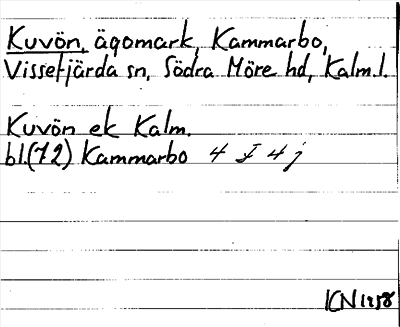 Kuvön, ägomark, Kammarbo,
Vissefjärda sn, Södra Möre hd, Kalm.l.
Kuvön ek Kalm.
bl.(72) Kammarbo 4 I 4 j
KN 1958